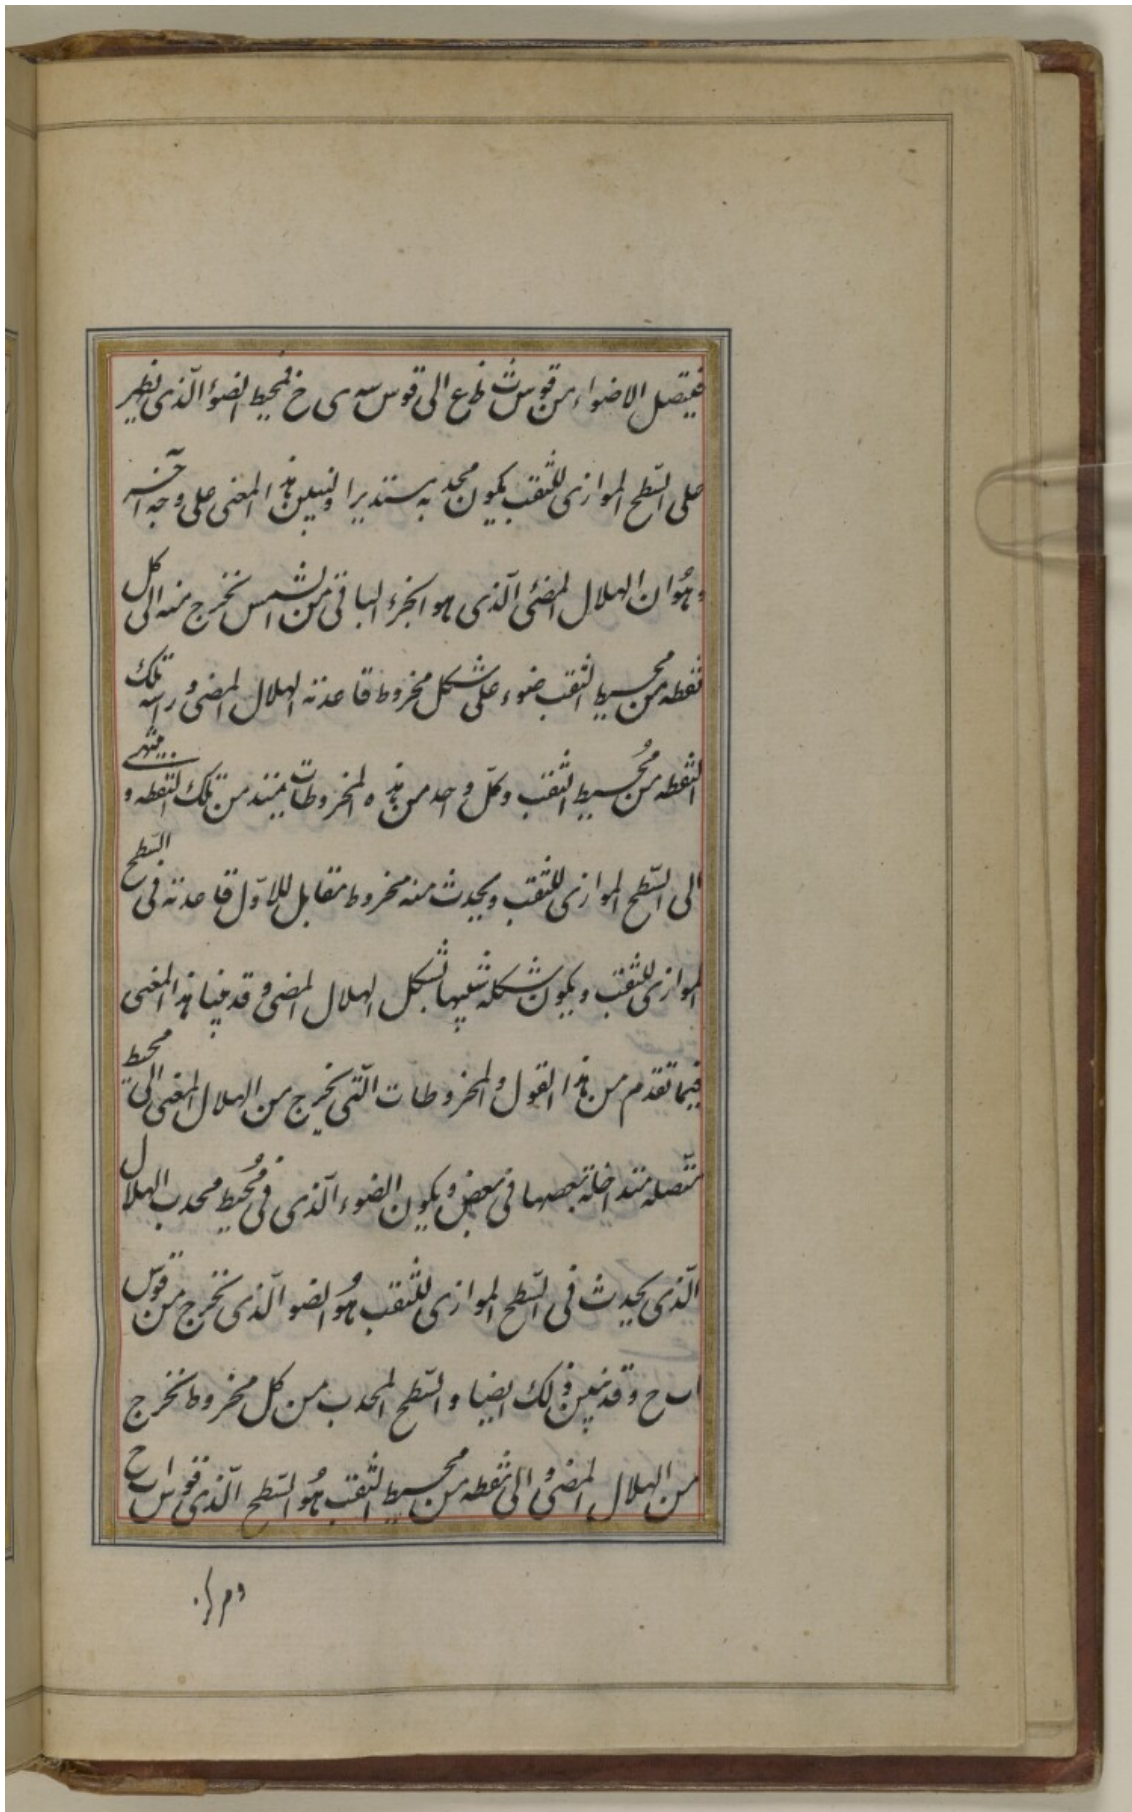 فيتصل الاضواء من قوس ث ظ ع الى قوس سه ى خ فمحيط الضوٴ الّذى يظهر
على السّطح الموازى للثقب يكون محدبه مستديرا ولنبين هذا المعنى على وجه آخر
وهُو ان الهلال المضئ الّذى هو الجزء الباقى من الشمس تخرج منه الى كل
نقطه من محيط الثقب ضوء على شكل مخروط قاعدته الهلال المضئ وراسه تلك
النقطه من مُحيط الثقب وكلّ واحد من هذه المخروطات يمتد من تلك النقطه و ينتهى
الى السّطح الموازى للثقب ويحدث منه مخروط مقابل للاوّل قاعدته فى السّطح
الموازى للثقب ويكون شكله شبيها بشكل الهلال المضئ وقد بينا هذا المعنى
فيما تقدم من هذا القول والمخروطات الّتى يخرج من الهلال المغنى الى محيط
متّصله متداخلة بعضها فى بعض ويكون الضوء الّذى فى مُحيط محدب الهلال
الّذى يحدث فى السّطح الموازى للثقب هُو الضو الّذى تخرج من قوس
ا ب ح وقد تبين ذلك ايضا والسّطح المحدب من كل مخروط تخرج
من الهلال المضئ الى نقطه من محيط الثقب هُو السّطح الّذى قوس ا ب ح